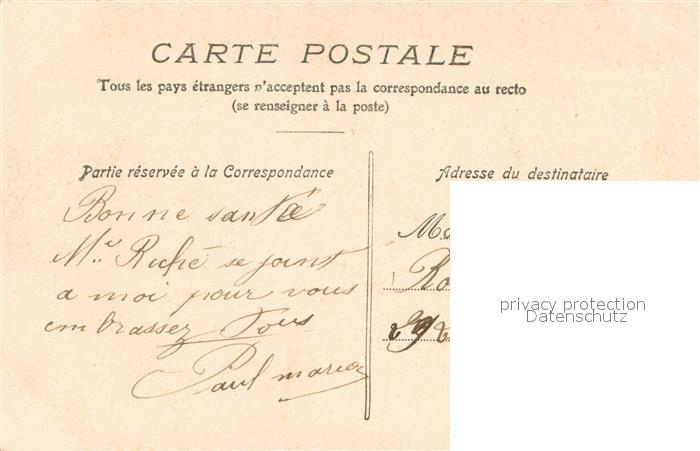 CARTE POSTALE
Tous les pays étrangers n'acceptent pas la correspondance au recto
(se renseigner à la poste)
Partie réservée à la Correspondance
Adresse du destinataire
Bonne santée
Mr Ruffié se joint
a moi pour vous
embrassez Tous
Paul marie
M
Ro
292
privacy protection
Datenschutz